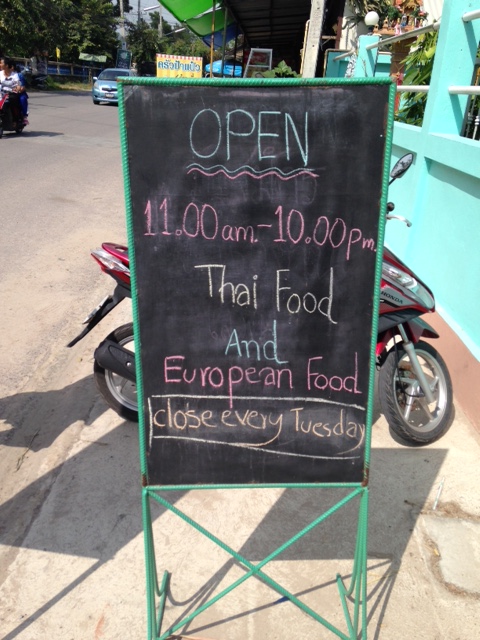 ครัวป้าแป๋ว
OPEN
11.00am.-10.00pm.
Thai Food
And
European Food
close every Tuesday
HONDA